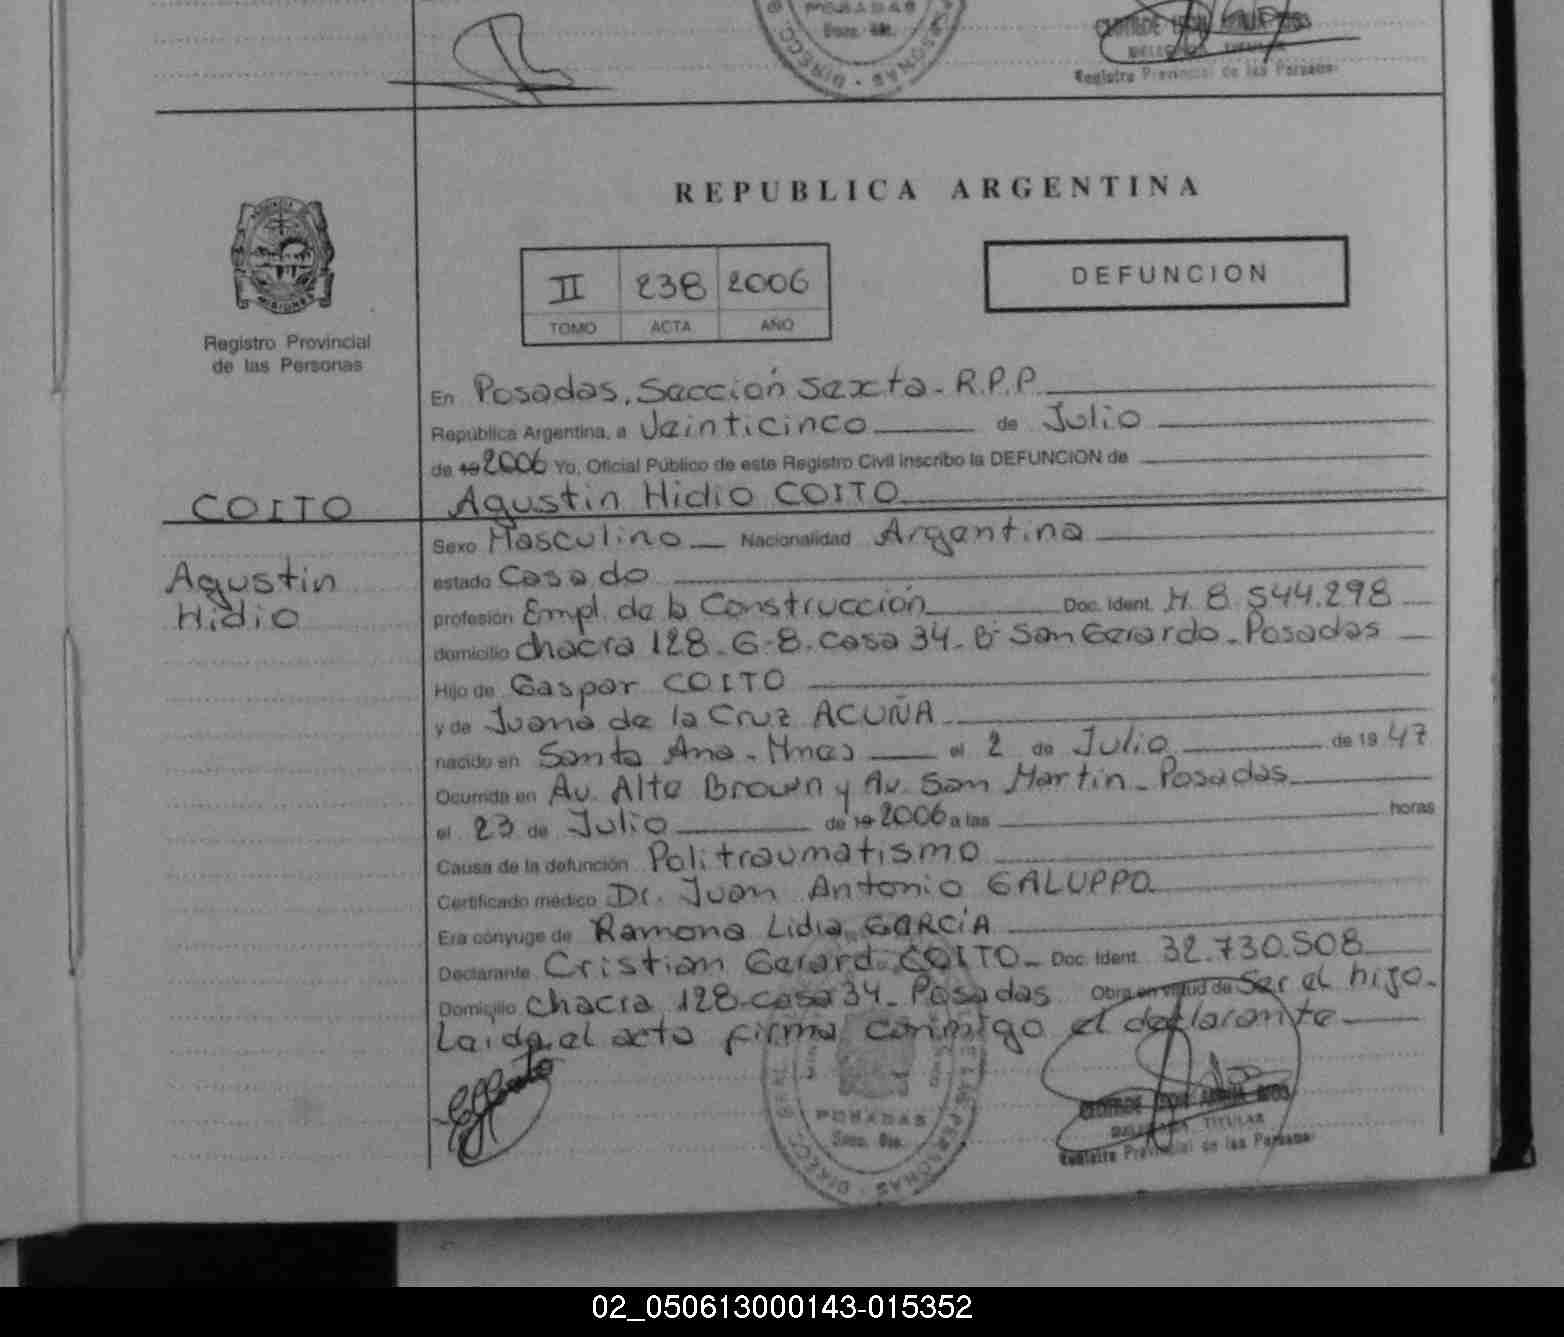 POSADAS
Secc. 6ta.
DIRECC.
PERSONAS
DELEGADA TITULAR
Registro Provincial de las Personas
REPUBLICA ARGENTINA
II 238 2006
TOMO ACTA AÑO
DEFUNCION
MISIONES
Registro Provincial
de las Personas
En Posadas, Sección Sexta - R.P.P.
República Argentina, a Veinticinco de Julio
de 19 2006 Yo, Oficial Público de este Registro Civil inscribo la DEFUNCION de
COITO
Agustin Hidio COITO
Agustin
Hidio
Sexo Masculino Nacionalidad Argentina
estado Casado
profesión Empl. de la Construcción Doc. Ident. M. 8.544.298
domicilio chacra 128 - G-8. casa 34 - Bº San Gerardo - Posadas
Hijo de Gaspar COITO
y de Juana de la Cruz ACUÑA
nacido en Santa Ana - Mnes el 2 de Julio de 19 47
Ocurrida en Av. Alte Brown y Av. San Martin - Posadas
el 23 de Julio de 19 2006 a las horas
Causa de la defunción Politraumatismo
Certificado médico Dr. Juan Antonio GALUPPO
Era cónyuge de Ramona Lidia GARCÍA
Declarante Cristian Gerardo COITO - Doc. Ident. 32.730.508
Domicilio chacra 128 - casa 34 - Posadas Obra en virtud de Ser el hijo -
Leida el acta firma conmigo el declarante
POSADAS
Secc. 6ta.
DIRECC. GRAL. DE LAS PERSONAS
DELEGADA TITULAR
Registro Provincial de las Personas
02_050613000143-015352